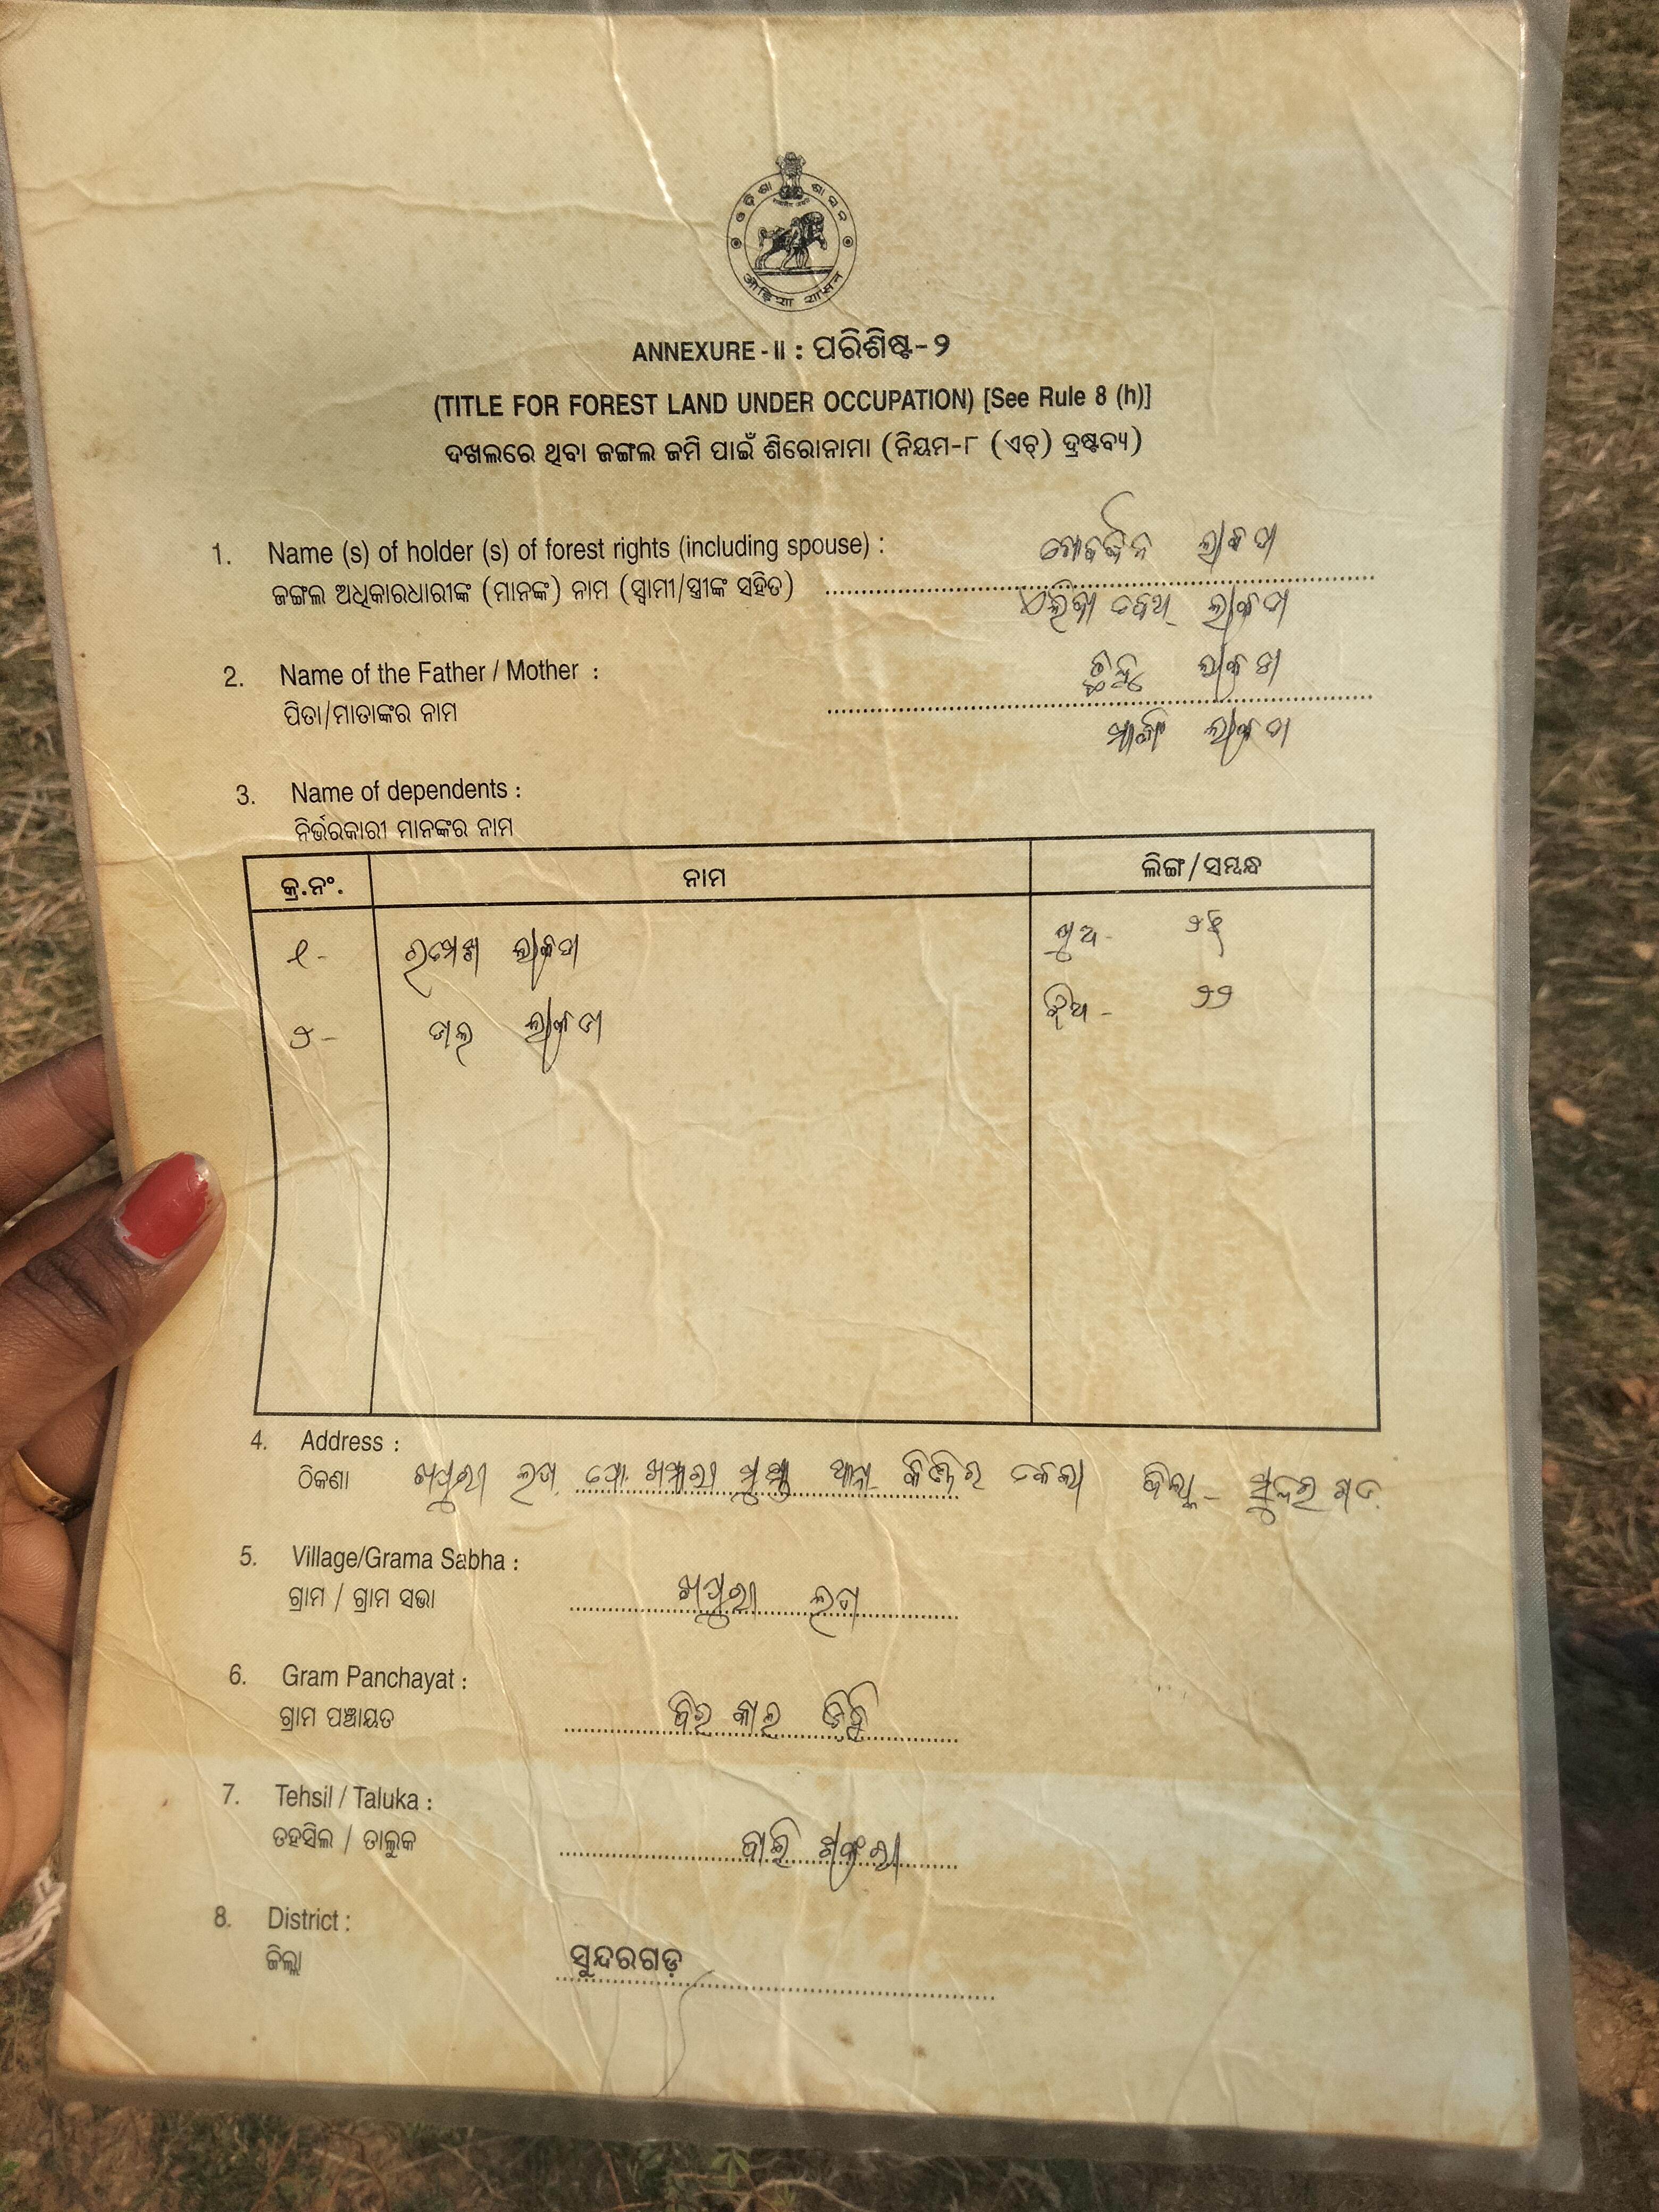 ଓଡ଼ିଶା ଶାସନ
ओड़िसा शासन
ANNEXURE - II : ପରିଶିଷ୍ଟ-୨
(TITLE FOR FOREST LAND UNDER OCCUPATION) [See Rule 8 (h)]
ଦଖଲରେ ଥିବା ଜଙ୍ଗଲ ଜମି ପାଇଁ ଶିରୋନାମା (ନିୟମ-୮ (ଏଚ୍) ଦ୍ରଷ୍ଟବ୍ୟ)
1. Name (s) of holder (s) of forest rights (including spouse) : ଲାକଡା
ଜଙ୍ଗଲ ଅଧିକାରଧାରୀଙ୍କ (ମାନଙ୍କ) ନାମ (ସ୍ୱାମୀ/ସ୍ତ୍ରୀଙ୍କ ସହିତ) ଲାକଡା
2. Name of the Father / Mother : ଲାକଡା
ପିତା/ମାତାଙ୍କର ନାମ ଲାକଡା
3. Name of dependents :
ନିର୍ଭରକାରୀ ମାନଙ୍କର ନାମ
କ୍ର.ନଂ. ନାମ ଲିଙ୍ଗ/ସମ୍ବନ୍ଧ
୧- ରମେଶ ଲାକଡା ପୁଅ-
୨- ଲାକଡା ଝିଅ- ୨୨
4. Address :
ଠିକଣା ଖପୁରୀ ପୋ. ଥାନା କିଞ୍ଜିର କେଲା ଜିଲ୍ଲା- ସୁନ୍ଦରଗଡ
5. Village/Grama Sabha :
ଗ୍ରାମ / ଗ୍ରାମ ସଭା ଖପୁରୀ
6. Gram Panchayat :
ଗ୍ରାମ ପଞ୍ଚାୟତ ବିର କାଲ ଡିହି
7. Tehsil / Taluka :
ତହସିଲ / ତାଲୁକ ବାଲି ଶଙ୍କରା
8. District :
ଜିଲ୍ଲା ସୁନ୍ଦରଗଡ଼